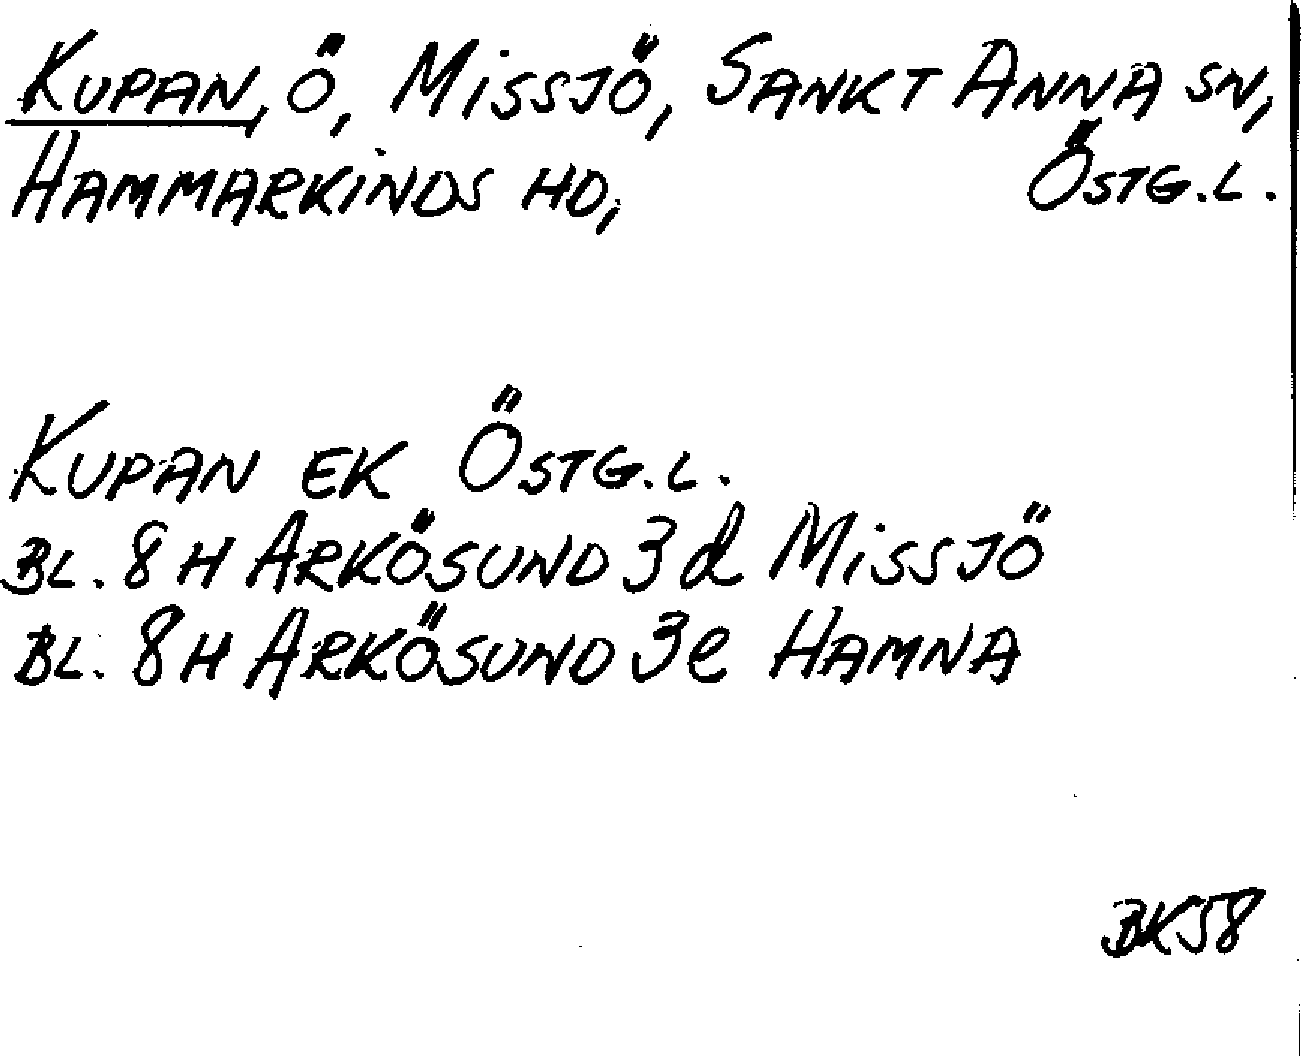 KUPAN, Ö, MISSJÖ, SANKT ANNA SN,
HAMMARKINDS HD, ÖSTG.L.
KUPAN EK ÖSTG.L.
BL. 8 H ARKÖSUND 3 d MISSJÖ
BL. 8 H ARKÖSUND 3 e HAMNA
BK58